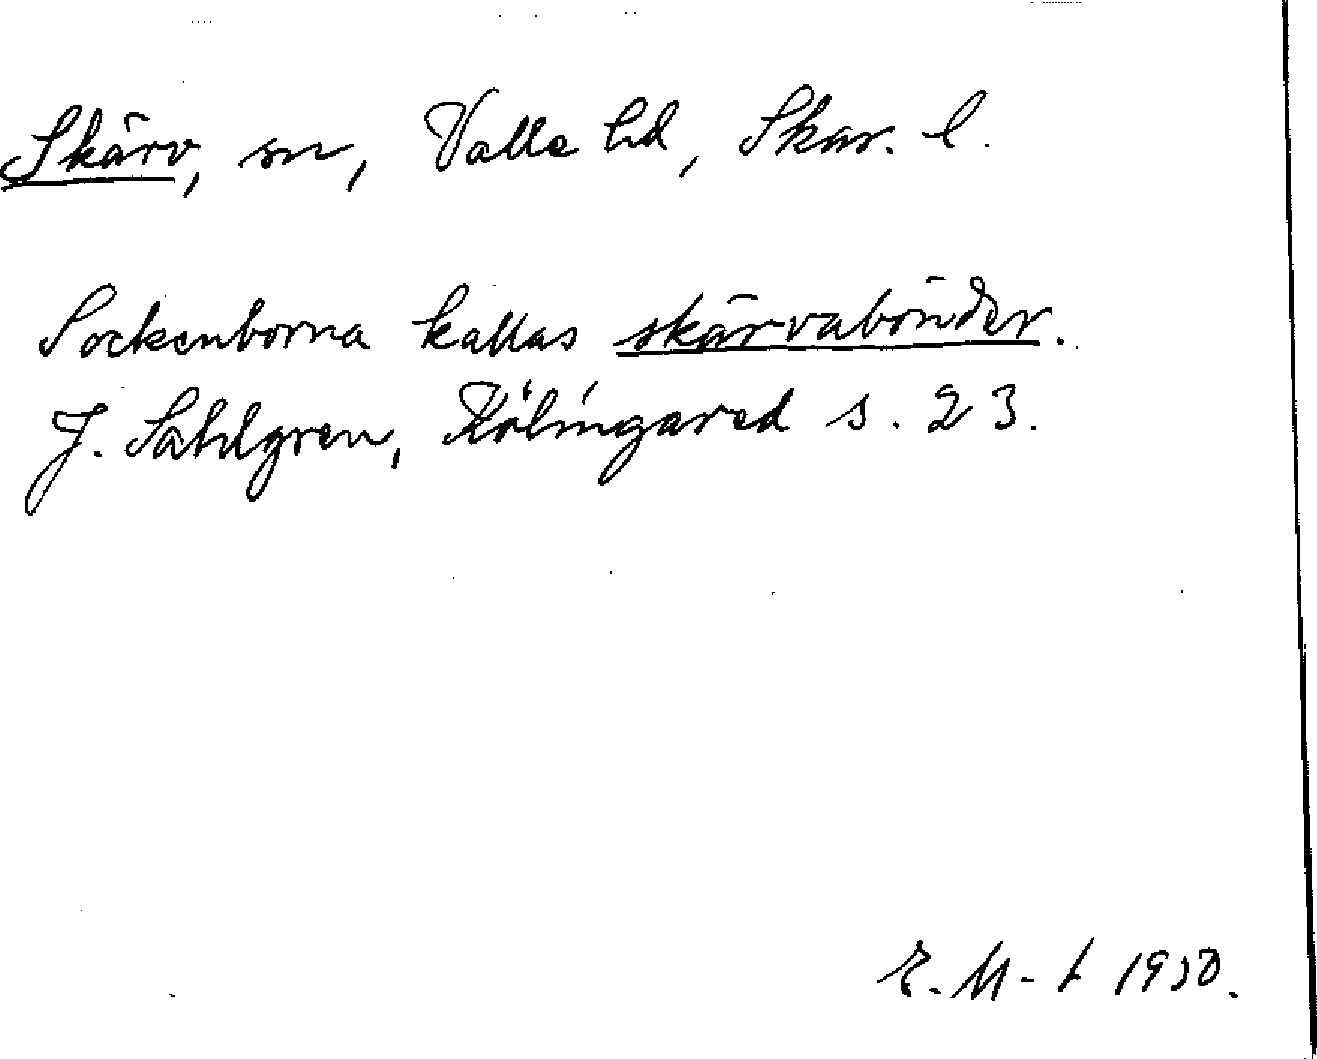 Skärv, sn, Valle hd, Skar. l.
Sockenborna kallas skärvabönder.
J. Sahlgren, Kölingared s. 23.
E. M-t 1930.